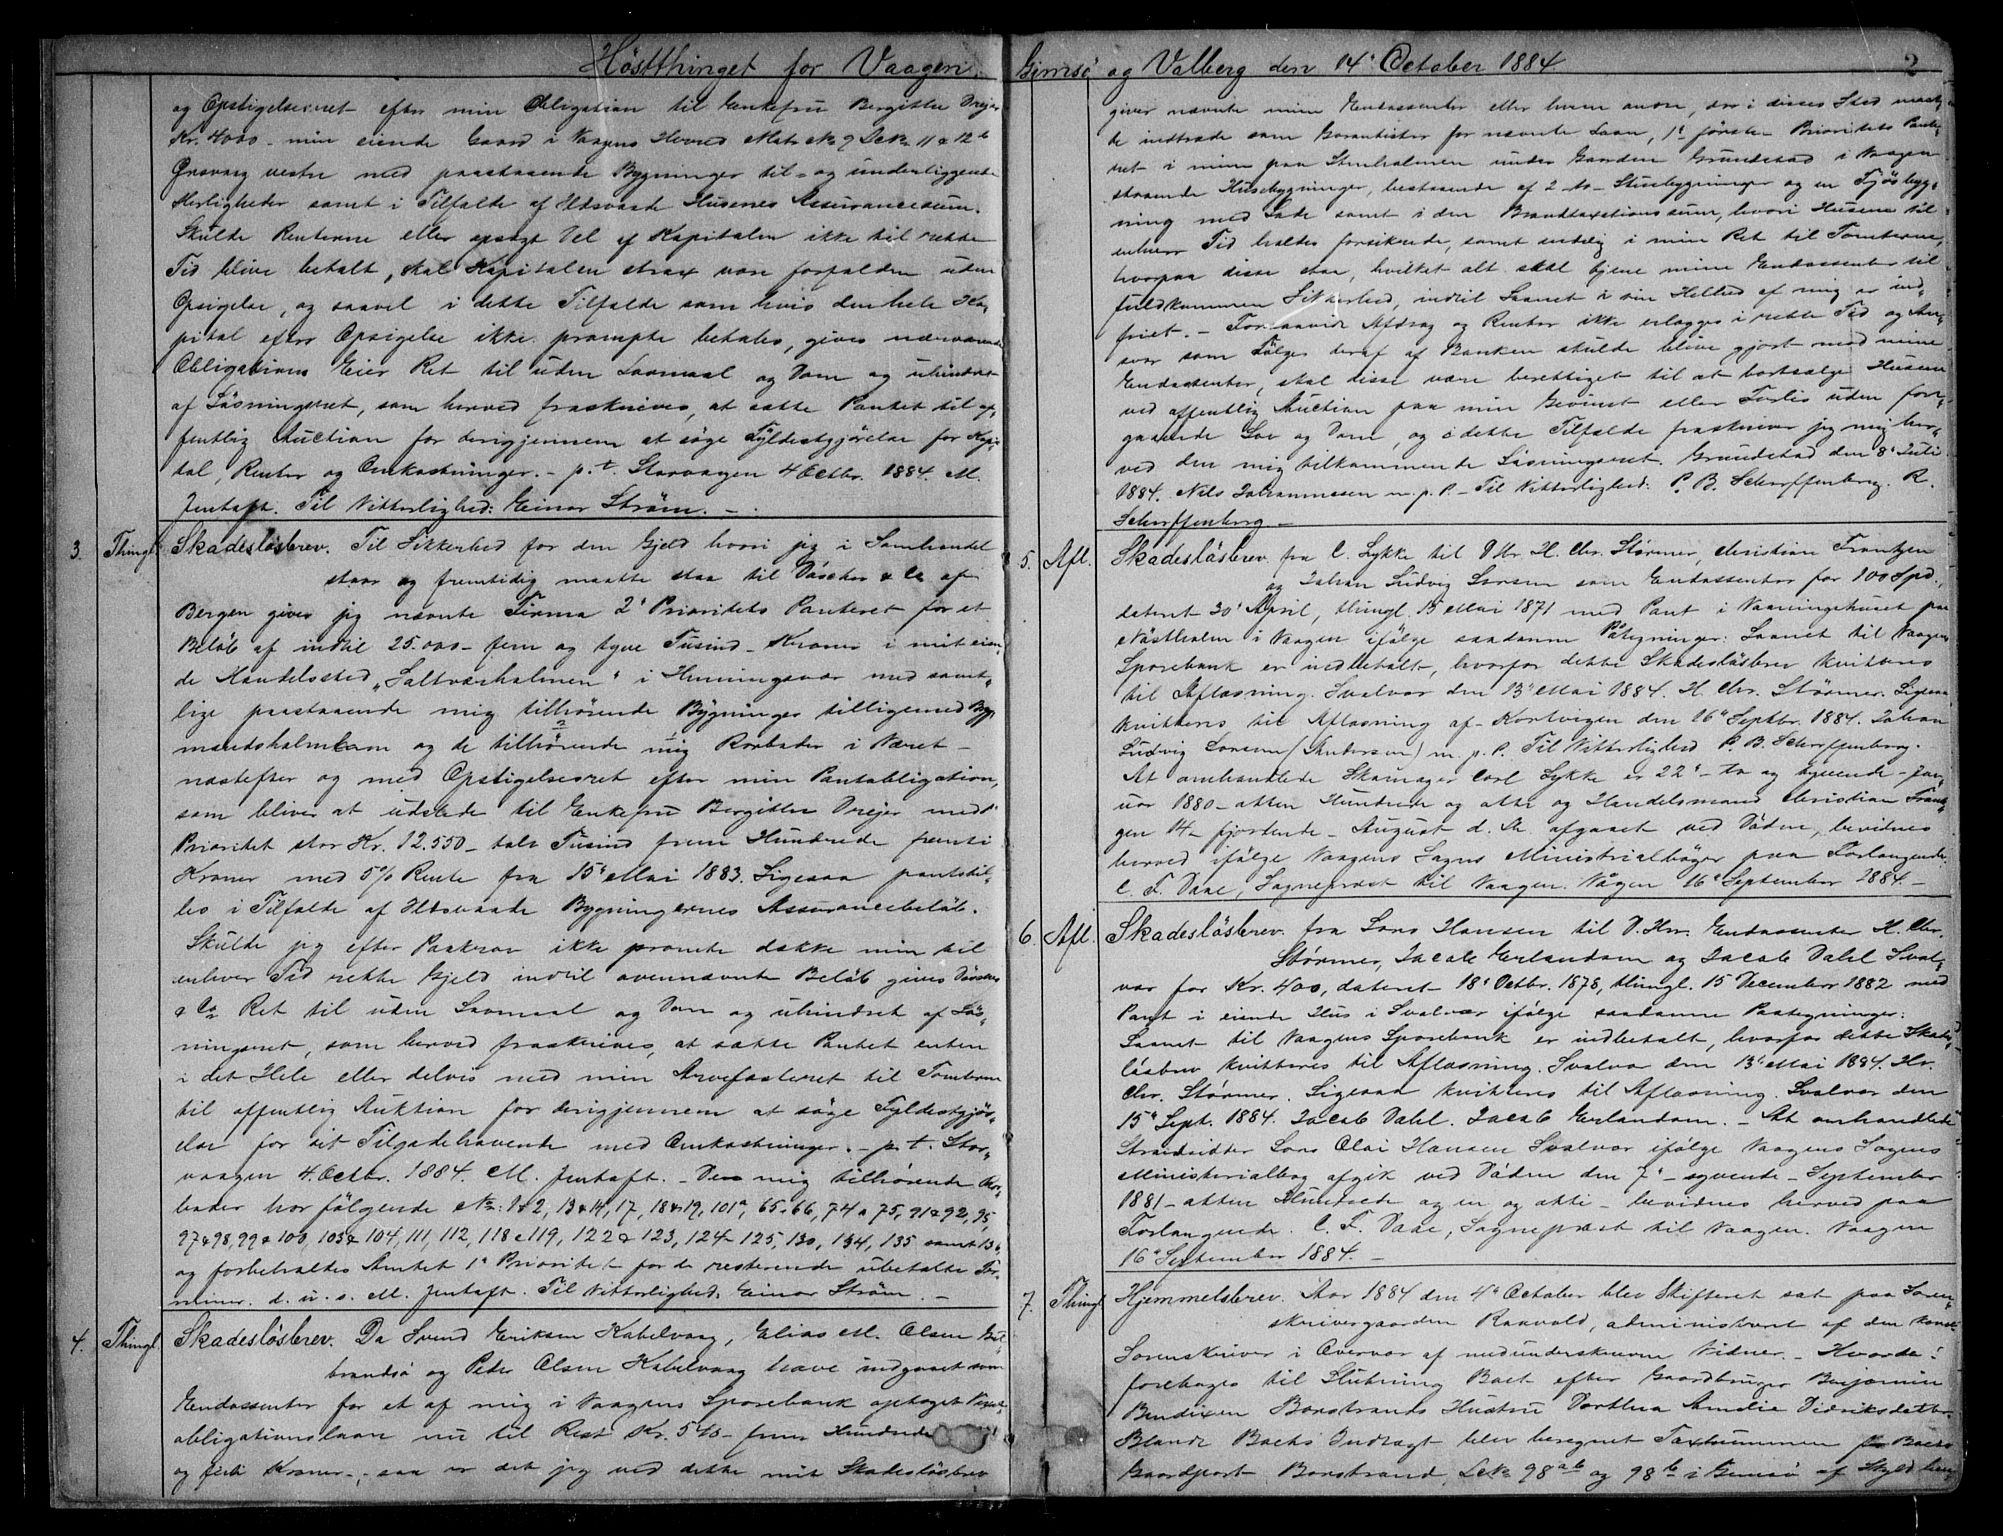 Høstthinget for Vaagen, Gimsø og Valberg den 14de October 1884. 2
og Opstigelsesret efter min Obligation til Enkefru Bergitte Drejer
Kr. 4000 - min eiende Gaard i Vaagens Herred Matr No 9 Lbk. 11 & 12b
Ørsvaag vestre med paastaaende Bygninger til- og underliggende
Herligheder samt i Tilfælde af Ildsvaade Husenes Assurancesum.
Skulde Renterne eller opsagt Del af Kapitalen ikke til rette
Tid blive betalt, skal Kapitalen strax være forfalden uden
Opsigelse, og saavel i dette Tilfælde som hvis den hele Ka-
pital efter Opsigelse ikke prompte betales, gives nærværende
Obligations Eier Ret til uden Lovmaal og Dom og uhindret
af Løsningsret, som herved fraskrives, at sætte Pantet til of-
fentlig Auction for derigjennem at søge Fyldestgjørelse for Kapi-
tal, Renter og Omkostninger. - p. t. Storvaagen 4 Octbr. 1884. M.
Jentoft. Til Vitterlighed: Einar Strøm. -
3. Thingl. Skadesløsbrev. Til Sikkerhed for den Gjeld hvori jeg i Samhandel
staar og fremtidig maatte staa til Däscher & Co af
Bergen giver jeg nævnte Firma 2den Prioritets Panteret for et
Beløb af indtil 25.000 - fem og tyve Tusind - Kroner i mit eien-
de Handelssted "Saltværholmen" i Henningsvær med samt-
lige paastaaende mig tilhørende Bygninger tilligemed Byg-
mandsholmen og de tilhørende mig Rorboder i Været -
næstefter og med Opstigelsesret efter min Pantobligation,
som bliver at udstede til Enkefru Bergitte Drejer med 1
Prioritet stor Kr. 12.550 - tolv Tusind fem Hundrede femti
Kroner med 5% Rente fra 15de Mai 1883. Ligesaa pantstil-
les i Tilfælde af Ildsvaade Bygningernes Assurancebeløb.
Skulde jeg efter Paakrav ikke promte dække min til
enhver Tid rette Gjeld indtil ovennævnte Beløb gives
& Co Ret til uden Lovmaal og Dom og uhindret af Løs-
ningsret, som herved fraskrives, at sætte Pantet enten
i det Hele eller delvis med min Arvefæsteret til Tomterne
til offentlig Auktion for derigjennem at søge Fyldestgjør-
else for sit Tilgodehavende med Omkostninger. - p. t. Stor-
vaagen 4. Octbr. 1884. M. Jentoft. - De mig tilhørende Ror-
boder har følgende No: 1&2, 13&14, 17, 18&19, 101a, 65&66, 74&75, 91&92, 95,
97&98, 99&100, 103&104, 111, 112, 118&119, 122&123, 124-125, 130, 134, 135 samt 136,
og forbeholdes Amtet 1ste Prioritet for de resterende ubetalte Ter-
miner. d. u. s. M. Jentoft. Til Vitterlighed: Einar Strøm. -
4. Thingl. Skadesløsbrev. Da Svend Eriksen Kabelvaag, Elias M. Olsen Gul-
brandsø og Peder Olsen Kabelvaag have indgaaet som
Endossenter for et af mig i Vaagens Sparebank optaget Vexel-
obligationslaan nu til Rest Kr. 540 - fem Hundrede
og firti Kroner -, saa er det jeg ved dette mit Skadesløsbrev
giver nævnte mine Endossenter eller hvem anden, der i disses Sted maat-
te indtræde som Garantister for nævnte Laan, 1ste første Prioritets Pante-
ret i mine paa Stenholmen under Gaarden Grundstad i Vaagen
staaende Husebygninger, bestaaende af 2 to - Stuebygninger og en Fjøsbyg-
ning med Lade samt i den Brandtaxationssum, hvori Husene til
enhver Tid holdes forsikrede, samt endelig i min Ret til Tomterne,
hvorpaa disse staa, hvilket alt skal tjene mine Endossenter til
fuldkommen Sikkerhed, indtil Laanet i sin Helhed af mig er ind-
friet. - Forsaavidt Afdrag og Renter ikke erlægges i rette Tid og An-
svar som Følge deraf af Banken skulde blive gjort mod mine
Endossenter, skal disse være berettiget til at bortsælge Husene
ved offentlig Auction paa min Gevinst eller Forlis uden fore-
gaaende Lov og Dom, og i dette Tilfælde fraskriver jeg mig her-
ved den mig tilkommende Løsningsret. Grundstad den 8de Juli
1884. Nils Johannessen m. p. P. - Til Vitterlighed: P. B. Schreffenberg. R.
Schreffenberg -
5. Afl. Skadesløsbrev fra C. Lykke til Dhr. H. Chr. Størmer, Christian Frantzen
og Johan Ludvig Larsen som Endossenter for 100 Spd.
dateret 30te April, thingl. 15 Mai 1871 med Pant i Vaaningshuset paa
Næstholm i Vaagen ifølge saadanne Påtegninger: Laanet til Vaagens
Sparebank er indbetalt, hvorfor dette Skadesløsbrev kvitteres
til Aflæsning. Svolvær den 13de Mai 1884. H. Chr. Størmer. Ligesaa
kvitteres til Aflæsning af - Kortvigen den 16de Septbr. 1884. Johan
Ludvig Larsen (Andersen) m. p. P. Til Vitterlighed P. B. Schreffenberg.
At omhandlede Skomager Carl Lykke er 22de - to og tyvende - Jan-
uar 1880 - atten Hundrede og otti og Handelsmand Christian Frant-
zen 14 - fjortende - August d. A. afgaaet ved Døden, bevidnes
herved ifølge Vaagens Sogns Ministerialbøger paa Forlangende.
C. F. Daae, Sogneprest til Vaagen. Vågen 16de September 1884. -
6. Afl. Skadesløsbrev fra Lars Hansen til D.Hrr. Endossenter H. Chr.
Størmer, Jacob Erlandsen og Jacob Dahl Svol-
vær for Kr. 400, dateret 18de Octbr. 1878, thingl. 15 December 1882 med
Pant i eiende Hus i Svolvær ifølge saadanne Paategninger:
Laanet til Vaagens Sparebank er indbetalt, hvorfor dette Skades-
løsbrev kvitteres til Aflæsning. Svolvær den 13de Mai 1884. H.
Chr. Størmer. Ligesaa kvitteres til Aflæsning. Svolvær den
15de Sept. 1884. Jacob Dahl. Jacob Erlandsen. - At omhandlede
Strandsidder Lars Olai Hansen Svolvær ifølge Vaagens Sogns
Ministerialbog afgik ved Døden den 7de - syvende - September
1881 - atten Hundrede og en og otti - bevidnes herved paa
Forlangende. C. F. Daae, Sogneprest til Vaagen. Vaagen
16de September 1884. -
7. Thingl. Hjemmelsbrev. Aar 1884 den 4de October blev Skifteret sat paa Soren-
skrivergaarden Raavold, administreret af den konst.
Sorenskriver i Overvær af medunderskrevne Vidner. - Hvorda:
foretoges til Slutning Boet efter Gaardbruger Benjamin
Bendixen Borstrands Hustru Dorthea Amalie Didriksdatter.
Blandt Boets Indtægt blev beregnet Taxtsummen for Boets
Gaardpart Borstrand, Lbk 98ab og 98b i Gimsø af Skyld